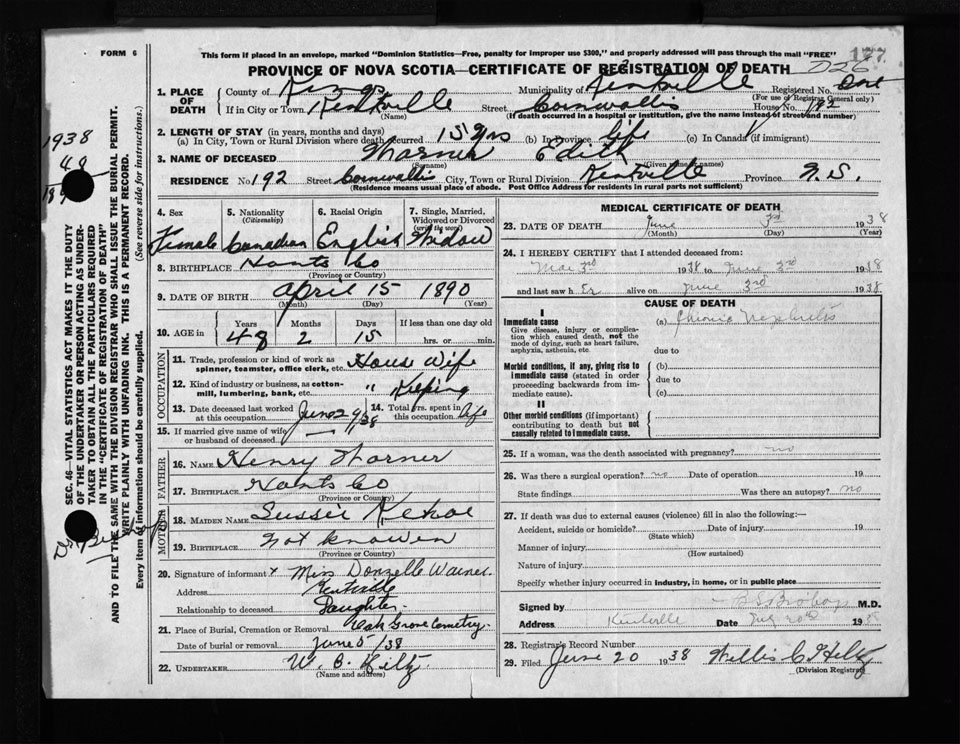 FORM 6
This form if placed in an envelope, marked "Dominion Statistics—Free, penalty for improper use $300," and properly addressed will pass through the mail "FREE"
177
PROVINCE OF NOVA SCOTIA—CERTIFICATE OF REGISTRATION OF DEATH
D26
1. PLACE OF DEATH
County of Kings Municipality of Kentville Registered No.
(For use of Registrar General only)
If in City or Town Kentville Street Cornwallis House No. 192
(Name) (If death occurred in a hospital or institution, give the name instead of street and number)
2. LENGTH OF STAY (in years, months and days)
(a) In City, Town or Rural Division where death occurred 15 yrs (b) In Province life (c) In Canada (if immigrant)
3. NAME OF DECEASED Warner Edith
(Surname) (Given names)
RESIDENCE No. 192 Street Cornwallis City, Town or Rural Division Kentville Province N.S.
(Residence means usual place of abode. Post Office Address for residents in rural parts not sufficient)
4. Sex Female
5. Nationality (Citizenship) Canadian
6. Racial Origin English
7. Single, Married, Widowed or Divorced (write the word) Widow
8. BIRTHPLACE Hants Co
(Province or County)
9. DATE OF BIRTH April 15 1890
(Month) (Day) (Year)
10. AGE in Years Months Days If less than one day old
48 2 15 hrs. or min.
OCCUPATION
11. Trade, profession or kind of work as spinner, teamster, office clerk, etc. House Wife
12. Kind of industry or business, as cotton-mill, lumbering, bank, etc. " Keeping
13. Date deceased last worked at this occupation June 2 9/38
14. Total yrs. spent in this occupation life
15. If married give name of wife or husband of deceased
FATHER
16. NAME Henry Warner
17. BIRTHPLACE Hants Co
(Province or County)
MOTHER
18. MAIDEN NAME Sussie Kehoe
19. BIRTHPLACE Not Knowen
(Province or Country)
20. Signature of informant x Miss Donzelle Warner
Address Kentville
Relationship to deceased Daughter
21. Place of Burial, Cremation or Removal Oak Grove Cemetry.
Date of burial or removal June 5/38
22. UNDERTAKER W. C. Hiltz
(Name and address)
MEDICAL CERTIFICATE OF DEATH
23. DATE OF DEATH June 3rd 1938
(Month) (Day) (Year)
24. I HEREBY CERTIFY that I attended deceased from:
Mar 3rd 1938 to June 3rd 1938
and last saw h er alive on June 3rd 1938
CAUSE OF DEATH
I
Immediate cause
Give disease, injury or complication which caused death, not the mode of dying, such as heart failure, asphyxia, asthenia, etc.
(a) Chronic Nephritis
due to
Morbid conditions, if any, giving rise to immediate cause (stated in order proceeding backwards from immediate cause).
(b)
due to
(c)
II
Other morbid conditions (if important) contributing to death but not causally related to immediate cause.
25. If a woman, was the death associated with pregnancy? no
26. Was there a surgical operation? no Date of operation 19
State findings Was there an autopsy? no
27. If death was due to external causes (violence) fill in also the following:—
Accident, suicide or homicide? Date of injury 19
(State which)
Manner of injury
(How sustained)
Nature of injury
Specify whether injury occurred in industry, in home, or in public place
Signed by M.D.
Address Kentville Date 20th 19
28. Registrar's Record Number
29. Filed June 20 1938 Willis C. Hiltz
(Division Registrar)
1938
48
SEC. 46—VITAL STATISTICS ACT MAKES IT THE DUTY
OF THE UNDERTAKER OR PERSON ACTING AS UNDER-
TAKER TO OBTAIN ALL THE PARTICULARS REQUIRED
IN THE "CERTIFICATE OF REGISTRATION OF DEATH"
AND TO FILE THE SAME WITH THE DIVISION REGISTRAR WHO SHALL ISSUE THE BURIAL PERMIT.
WRITE PLAINLY WITH UNFADING INK. THIS IS A PERMANENT RECORD.
Every item of information should be carefully supplied. (See reverse side for instructions.)